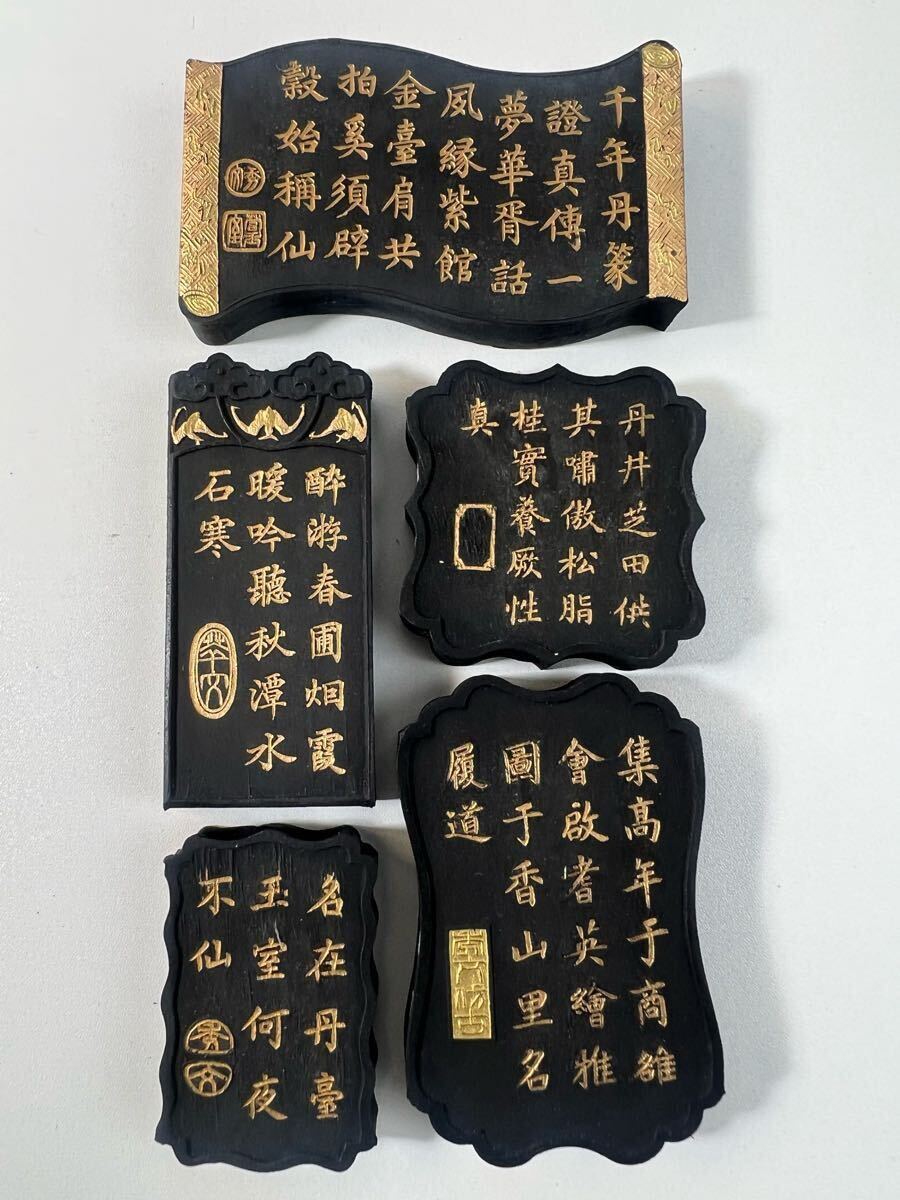 千年丹篆
證真傳一
夢華胥話
夙縁紫館
金臺肩共
拍奚須辟
穀始稱仙
酔游春圃烟霞
暖吟聽秋潭水
石寒
丹井芝田供
其嘯傲松脂
桂實養厥性
真
名在丹臺
玉室何夜
不仙
集髙年于商雒
會啟耆英繪推
圖于香山里名
履道